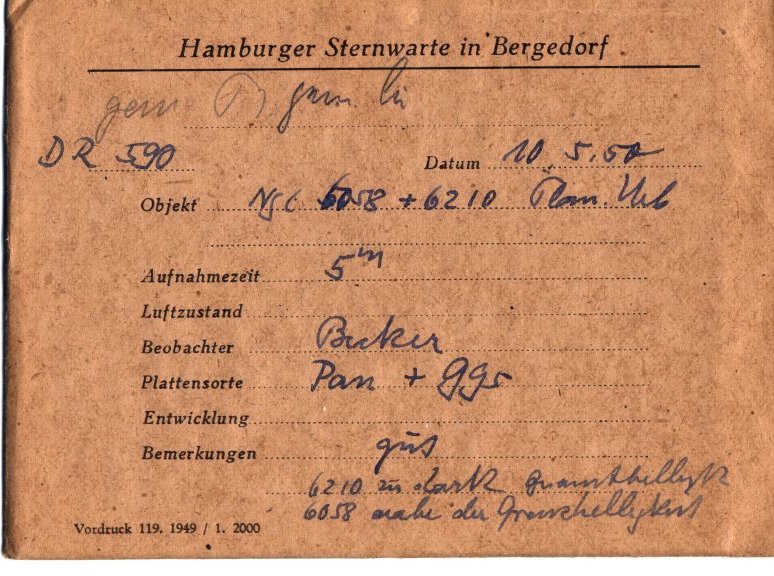 Hamburger Sternwarte in Bergedorf
gem. gem. Li
DR 590 Datum 10.5.50
Objekt NGC 6058 + 6210 Plan. Neb
Aufnahmezeit 5m
Luftzustand
Beobachter Becker
Plattensorte Pan + GG5
Entwicklung
Bemerkungen gut
6210 zu stark
6058 nahe der Grenzhelligkeit
Vordruck 119. 1949 / 1. 2000